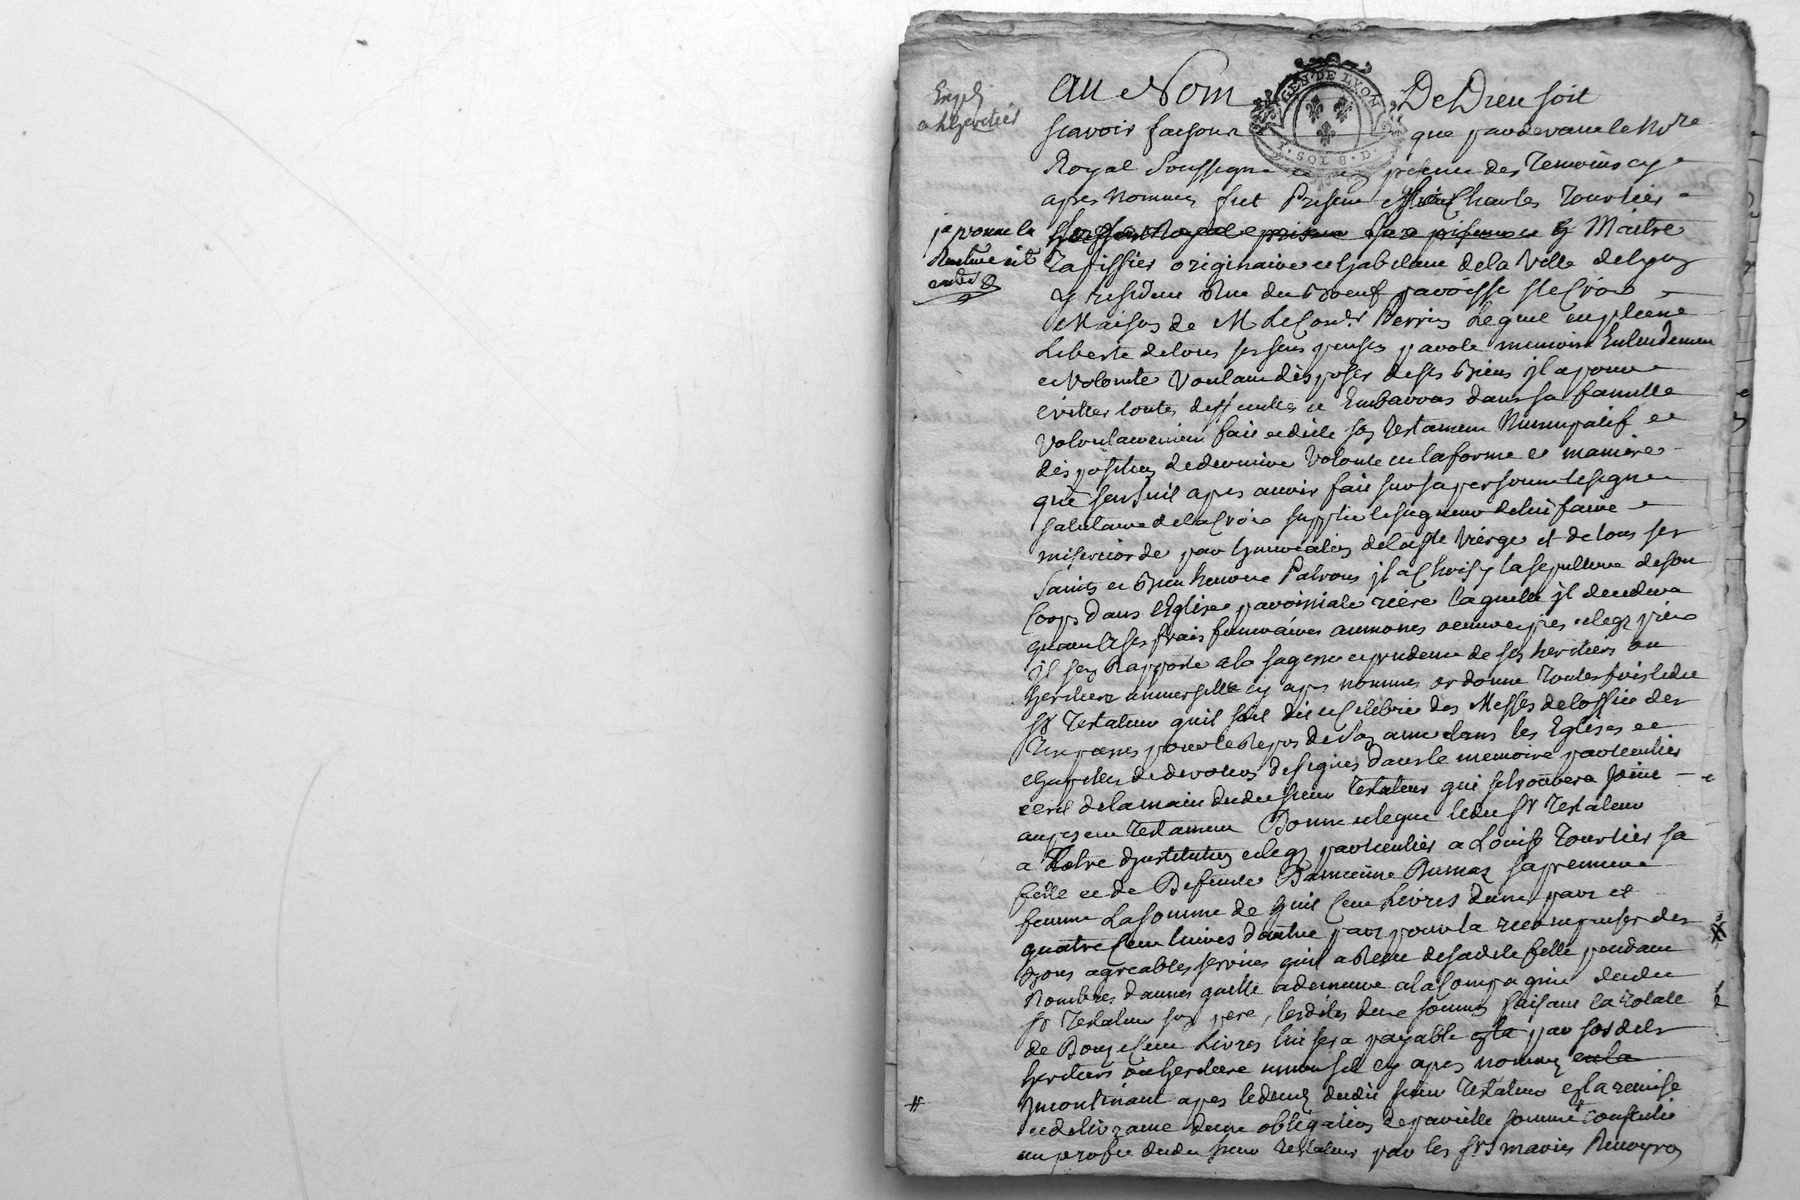 Expé
a lheritier
Au Nom De Dieu soit
GEN · DE LYON
· SOLS · D ·
scavoir faisons que pardevant le No.re
Royal Soussigne et en presence des Temoins cy
apres nommes fut Present sieur Charles Tourtier
Maitre
japrouve la
Rature cit
Taffissier originaire et habitant de la Ville de lyon
y resident Rue du Boeuf paroisse Ste Croix
Maison de M Perrin Lequel en pleine
Liberte de tous ses sens pensés parole memoire Entendement
et Volonte Voulant disposer de ses Biens jl a pour
éviter toutes difficultes et Embarras dans sa famille
Volontairement fait et dicté son Testament Nuncupatif et
disposition de derniere Volonte en la forme et maniere
que sensuit apres avoir fait sur sa personne le signe
salutaire de la Croix supplié le seigneur de lui faire
misericorde par lintercession de la Ste Vierge et de tous ses
Saints et Bien heureux Patrons jl a Choisy la sepulture de son
Corps dans l'Eglise paroissiale riere laquelle jl decedera
quant a ses frais funeraires aumones oeuvres pies et legz pieux
jl sen Rapporte a la sagesse et prudence de ses heritiers ou
heritiere universelle cy apres nommes ordonne Toutes fois ledit
sr Testateur quil soit dit et Celebré des Messes de loffice des
Trepasses pour le Repos de son ame dans les Eglises et
Chapelles de devotion designés dans le memoire particulier
ecrit de la main dudit sieur Testateur qui se trouvera joint
au present Testament Donne et legue ledit sr Testateur
a Titre dinstitution et legz particulier a Louise Tourtier sa
fille et de Defunte sa premiere
femme La somme de huit Cent Livres dune part et
quatre Cent livres dautre part pour la recompenser des
Bons agreables services quil a Recu de sadite fille pendant
Nombres dannés quelle a demeuré a la Compagnie dudit
sr Testateur son pere, lesdites deux sommes faisant la totale
de Douze Cent Livres lui sera payable par ses dits
heritiers ou heritiere universel cy apres nommez
incontinant apres le deces dudit sieur Testateur et la remise
et delivrance dune obligation de pareille somme Constitué
au profit dudit sieur Testateur par les srs mariés